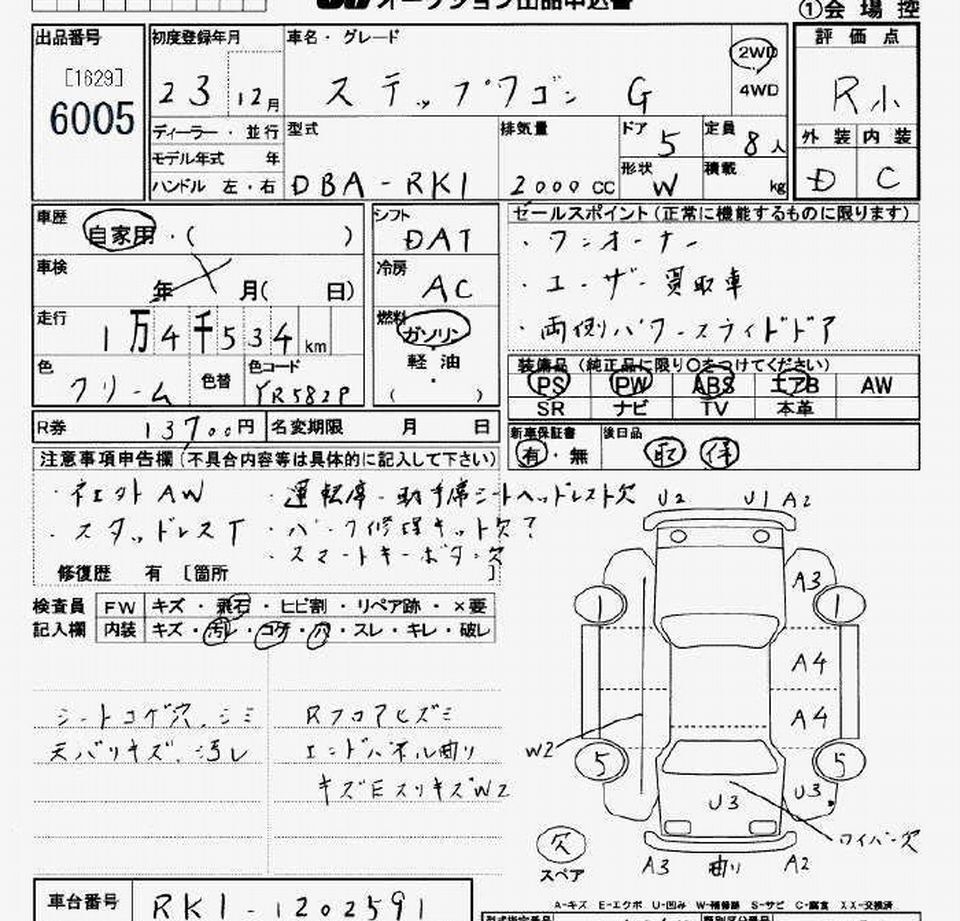 オークション出品申込書
①会場控
出品番号
[1629]
6005
初度登録年月
23 12月
車名・グレード
ステップワゴン G
2WD
4WD
評価点
R小
外装 内装
D C
ディーラー・並行
モデル年式 年
ハンドル 左・右
型式
DBA-RK1
排気量
2000 CC
ドア 5
定員 8人
形状 W
積載 kg
車歴
自家用・( )
車検
年 月( 日)
走行
1万4千534 km
色
クリーム
色替
色コード
YR582P
シフト
DAT
冷房
AC
燃料
ガソリン
軽油
・
( )
セールスポイント(正常に機能するものに限ります)
・ワンオーナー
・ユーザー買取車
・両側パワースライドドア
装備品(純正品に限り○をつけてください)
PS PW ABS エアB AW
SR ナビ TV 本革
R券
13700円
名変期限 月 日
新車保証書
有・無
後日品
取 保
注意事項申告欄(不具合内容等は具体的に記入して下さい)
・社外AW ・運転席・助手席シートヘッドレスト欠
・スタッドレスT ・パンク修理キット欠?
・スマートキーボタン欠
修復歴 有 [箇所 ]
検査員 FW キズ・飛石・ヒビ割・リペア跡・×要
記入欄 内装 キズ・汚レ・コゲ・穴・スレ・キレ・破レ
シートコゲ穴、シミ
天バリキズ、汚レ
Rフロアヒズミ
エンドパネル曲り
キズE スリキズW2
U2 U1 A2
A3
1 1
A4
A4
W2
5 5
U3 U3
ワイパー欠
欠
スペア
A3 曲り A2
A-キズ E-エクボ U-凹み W-補修跡 S-サビ C-腐食 XX-交換済
車台番号
RK1-1202591
型式指定番号
類別区分番号